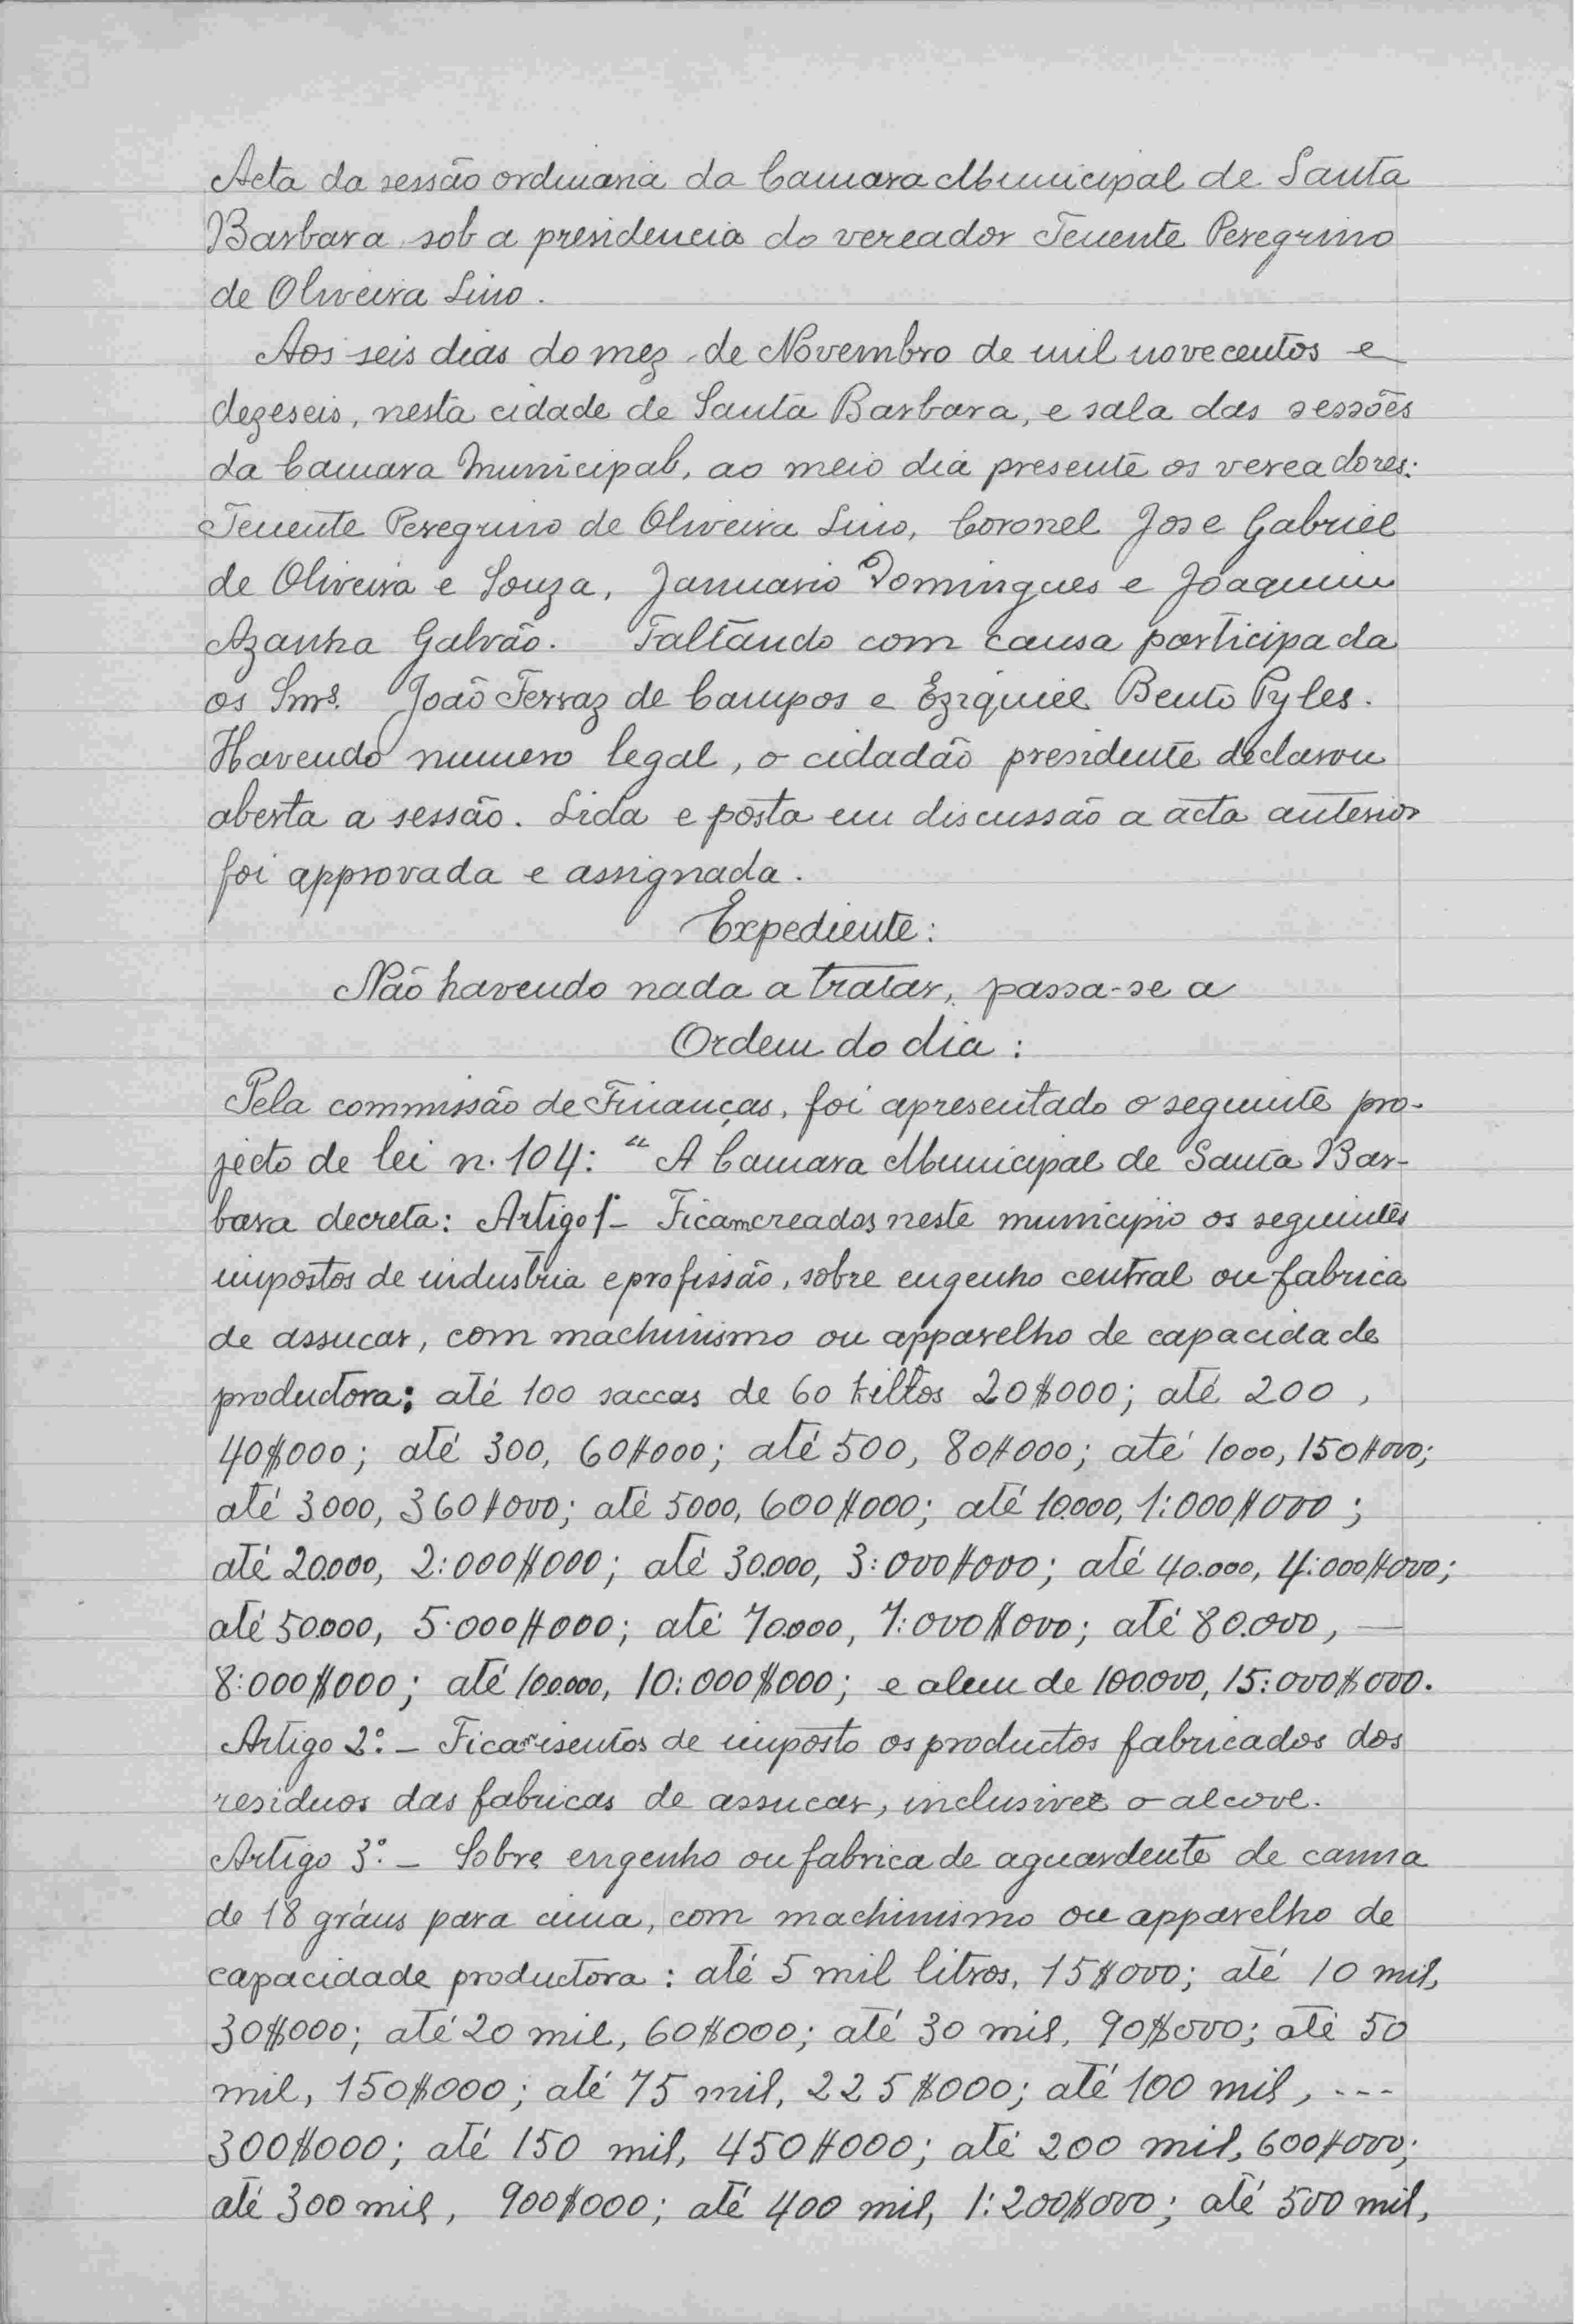 Acta da sessão ordinaria da Camara Municipal de Santa
Barbara sob a presidencia do vereador Tenente Peregrino
de Oliveira Lino.
Aos seis dias do mez de Novembro de mil novecentos e
dezeseis, nesta cidade de Santa Barbara, e sala das sessões
da Camara Municipal, ao meio dia presente os vereadores:
Tenente Peregrino de Oliveira Lino, Coronel Jose Gabriel
de Oliveira e Souza, Januario Domingues e Joaquim
Azanha Galvão. Faltando com causa participada
os Snrs. João Ferraz de Campos e Ezequiel Bento Pyles.
Havendo numero legal, o cidadão presidente declarou
aberta a sessão. Lida e posta em discussão a acta anterior
foi approvada e assignada.
Expediente:
Não havendo nada a tratar, passa-se a
Ordem do dia:
Pela commissão de Finanças, foi apresentado o seguinte pro-
jecto de lei n. 104: "A Camara Municipal de Santa Bar-
bara decreta: Artigo 1º - Ficam creados neste municipio os seguintes
impostos de industria e profissão, sobre engenho central ou fabrica
de assucar, com machinismo ou apparelho de capacidade
productora: até 100 saccas de 60 killos 20$000; até 200,
40$000; até 300, 60$000; até 500, 80$000; até 1000, 150$000;
até 3000, 360$000; até 5000, 600$000; até 10.000, 1:000$000;
até 20.000, 2:000$000; até 30.000, 3:000$000; até 40.000, 4:000$000;
até 50.000, 5:000$000; até 70.000, 7:000$000; até 80.000, —
8:000$000; até 100.000, 10:000$000; e alem de 100.000, 15:000$000.
Artigo 2º. - Ficam isentos de imposto os productos fabricados dos
residuos das fabricas de assucar, inclusivee o alcool.
Artigo 3º. - Sobre engenho ou fabrica de aguardente de canna
de 18 gráus para cima, com machinismo ou apparelho de
capacidade productora: até 5 mil litros, 15$000; até 10 mil,
30$000; até 20 mil, 60$000; até 30 mil, 90$000; até 50
mil, 150$000; até 75 mil, 225$000; até 100 mil, ---
300$000; até 150 mil, 450$000; até 200 mil, 600$000;
até 300 mil, 900$000; até 400 mil, 1:200$000; até 500 mil,